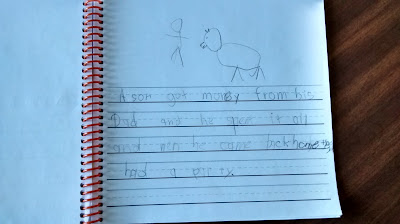 A son got money from his
Dad and he spent it all
and wen he came back home they
had a